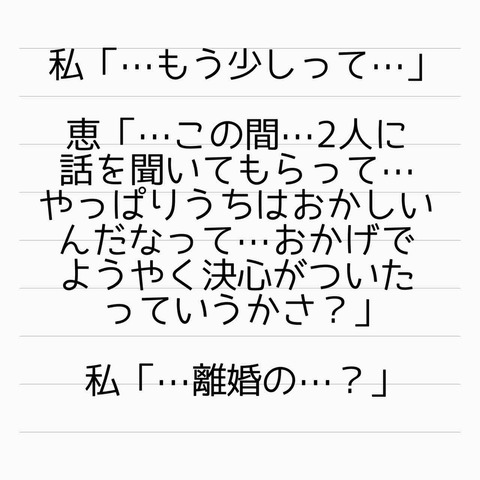 私「…もう少しって…」
恵「…この間…2人に
話を聞いてもらって…
やっぱりうちはおかしい
んだなって…おかげで
ようやく決心がついた
っていうかさ？」
私「…離婚の…？」